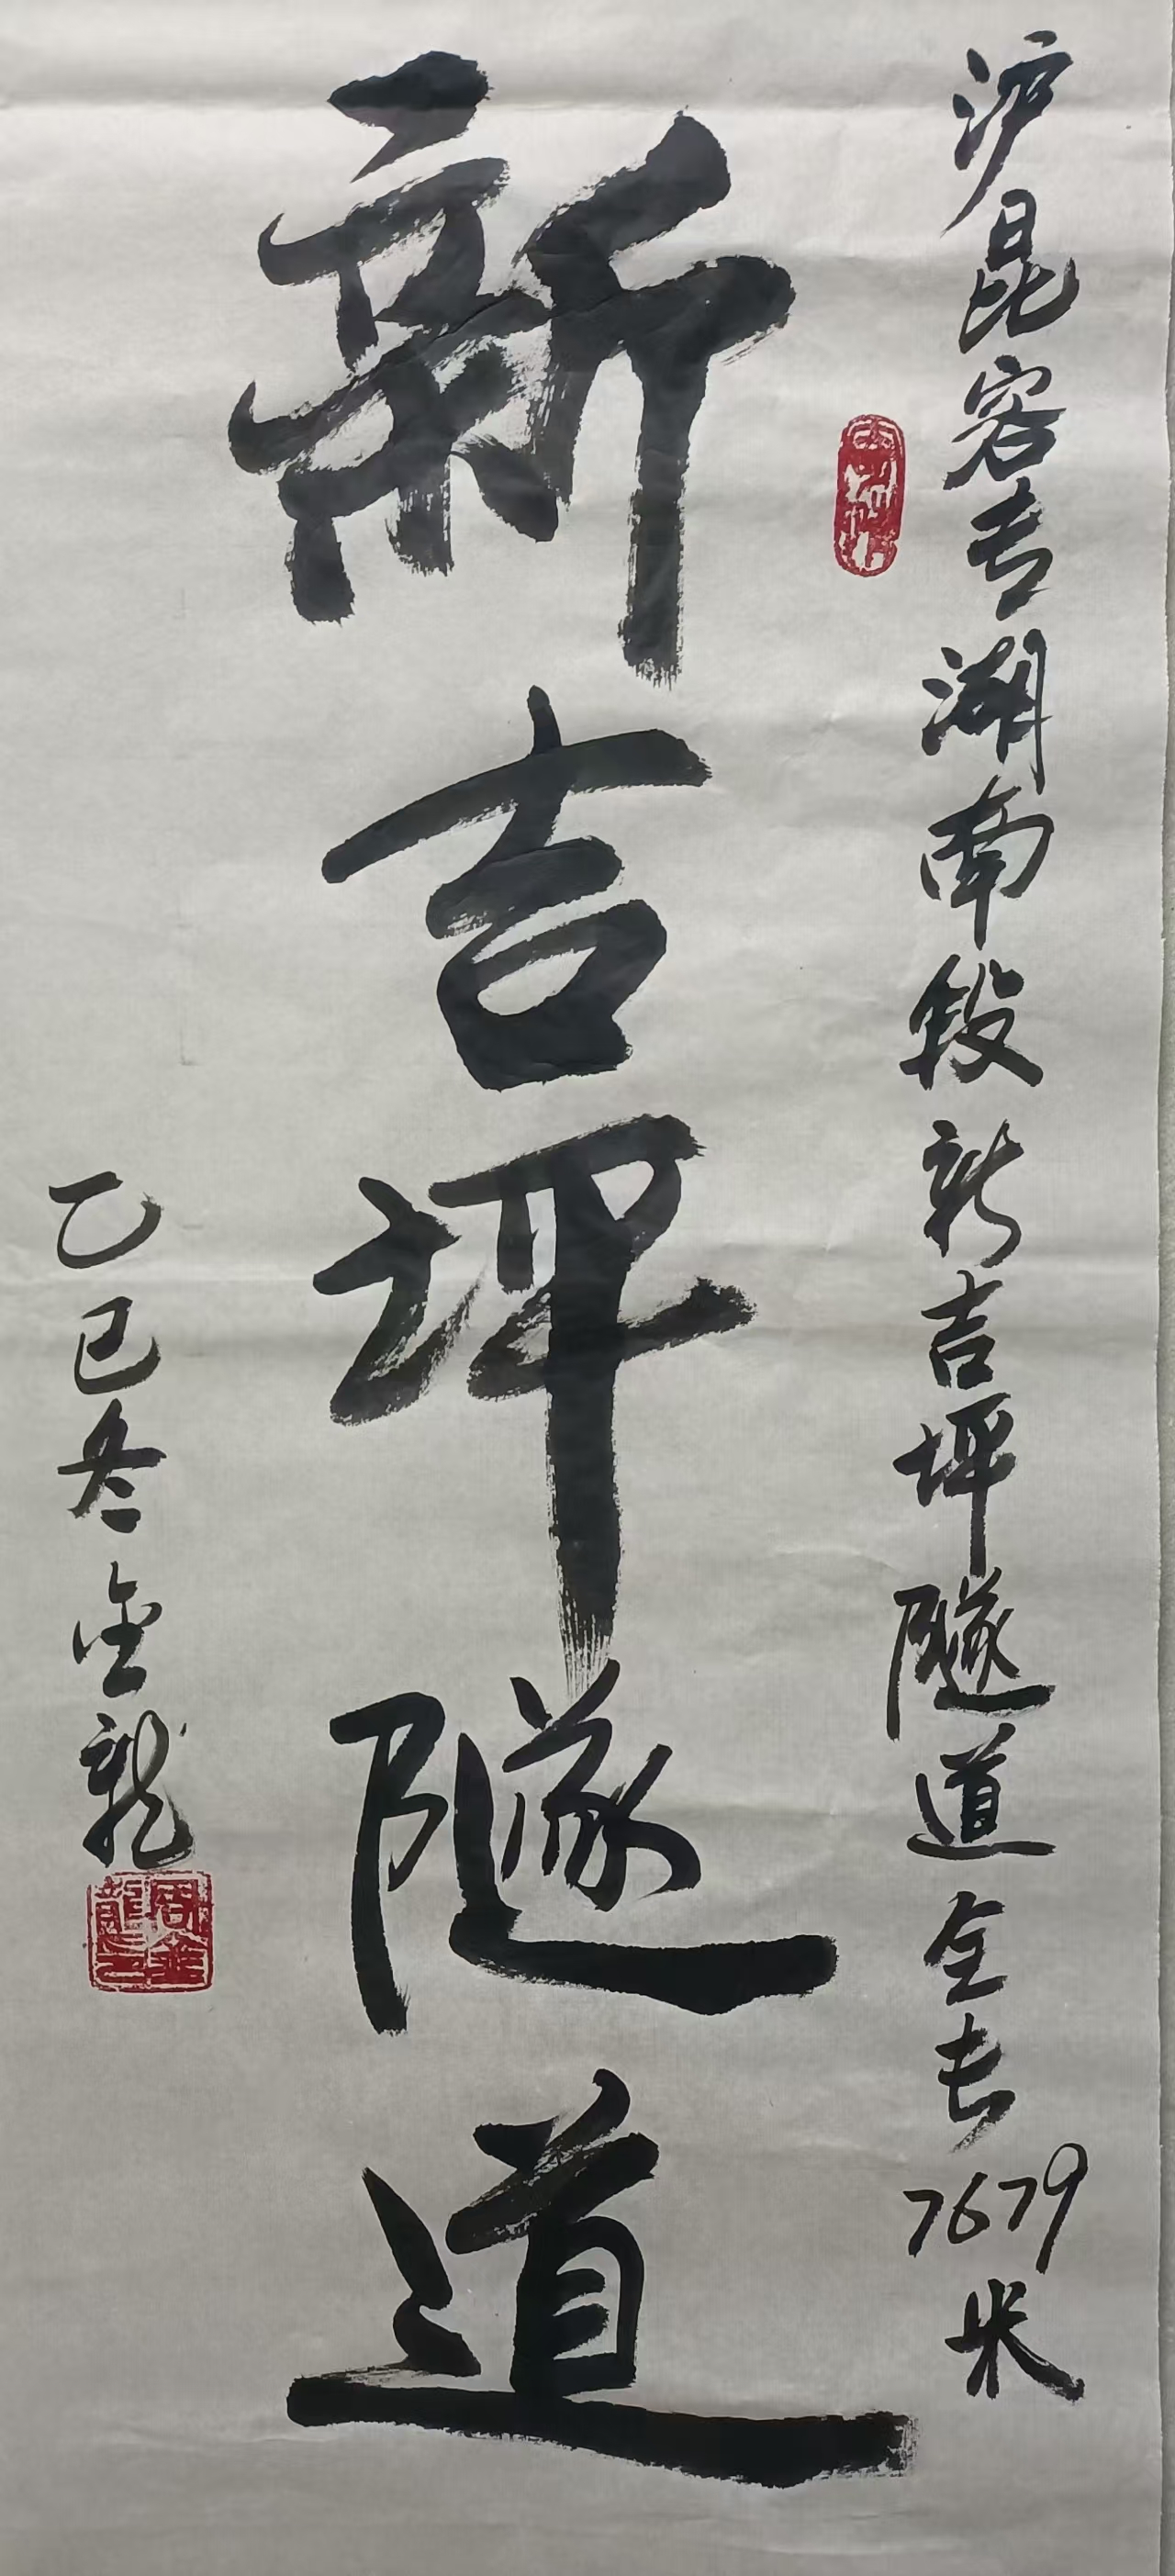 沪昆客专湖南段新吉坪隧道全长7679米
新吉坪隧道
乙巳冬金龙
周金龍印